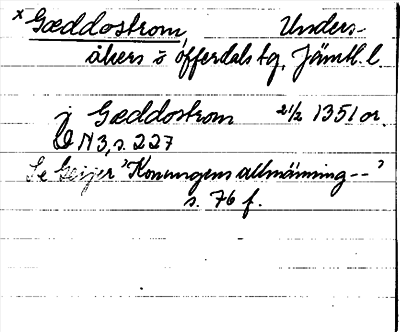 * Gæddostrom, Unders-
åkers o offerdals tg, Jämtl. l.
j Gæddostrom 2/2 1351 or.
N 3, s. 227
Se Geijer "Konungens allmänning --"
s. 76 f.